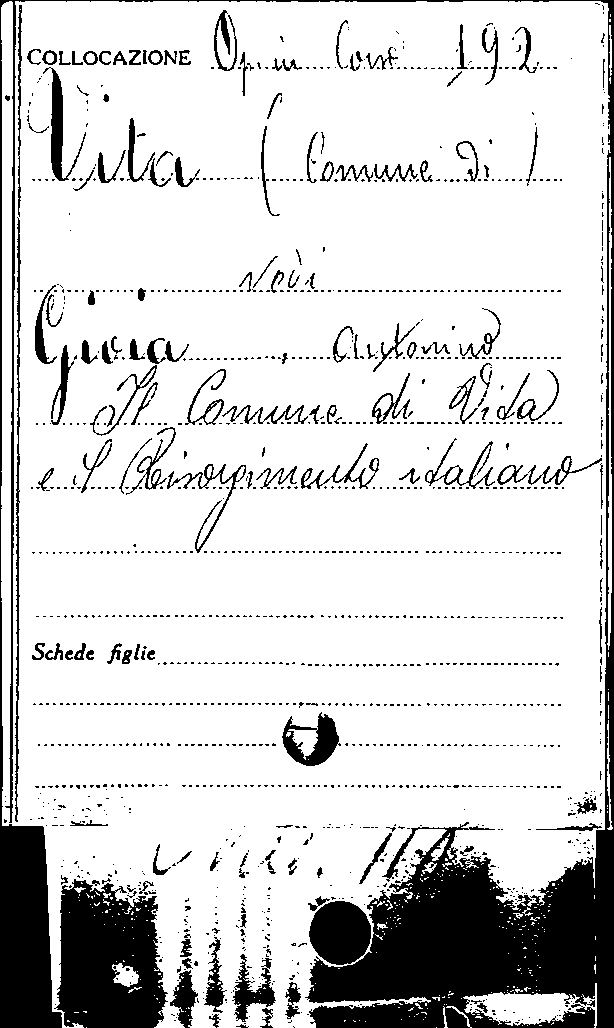 COLLOCAZIONE Op. in Cons 192
Vita (Comune di)
vedi
Gioia, Antonino
Il Comune di Vita
e il Risorgimento italiano
Schede figlie